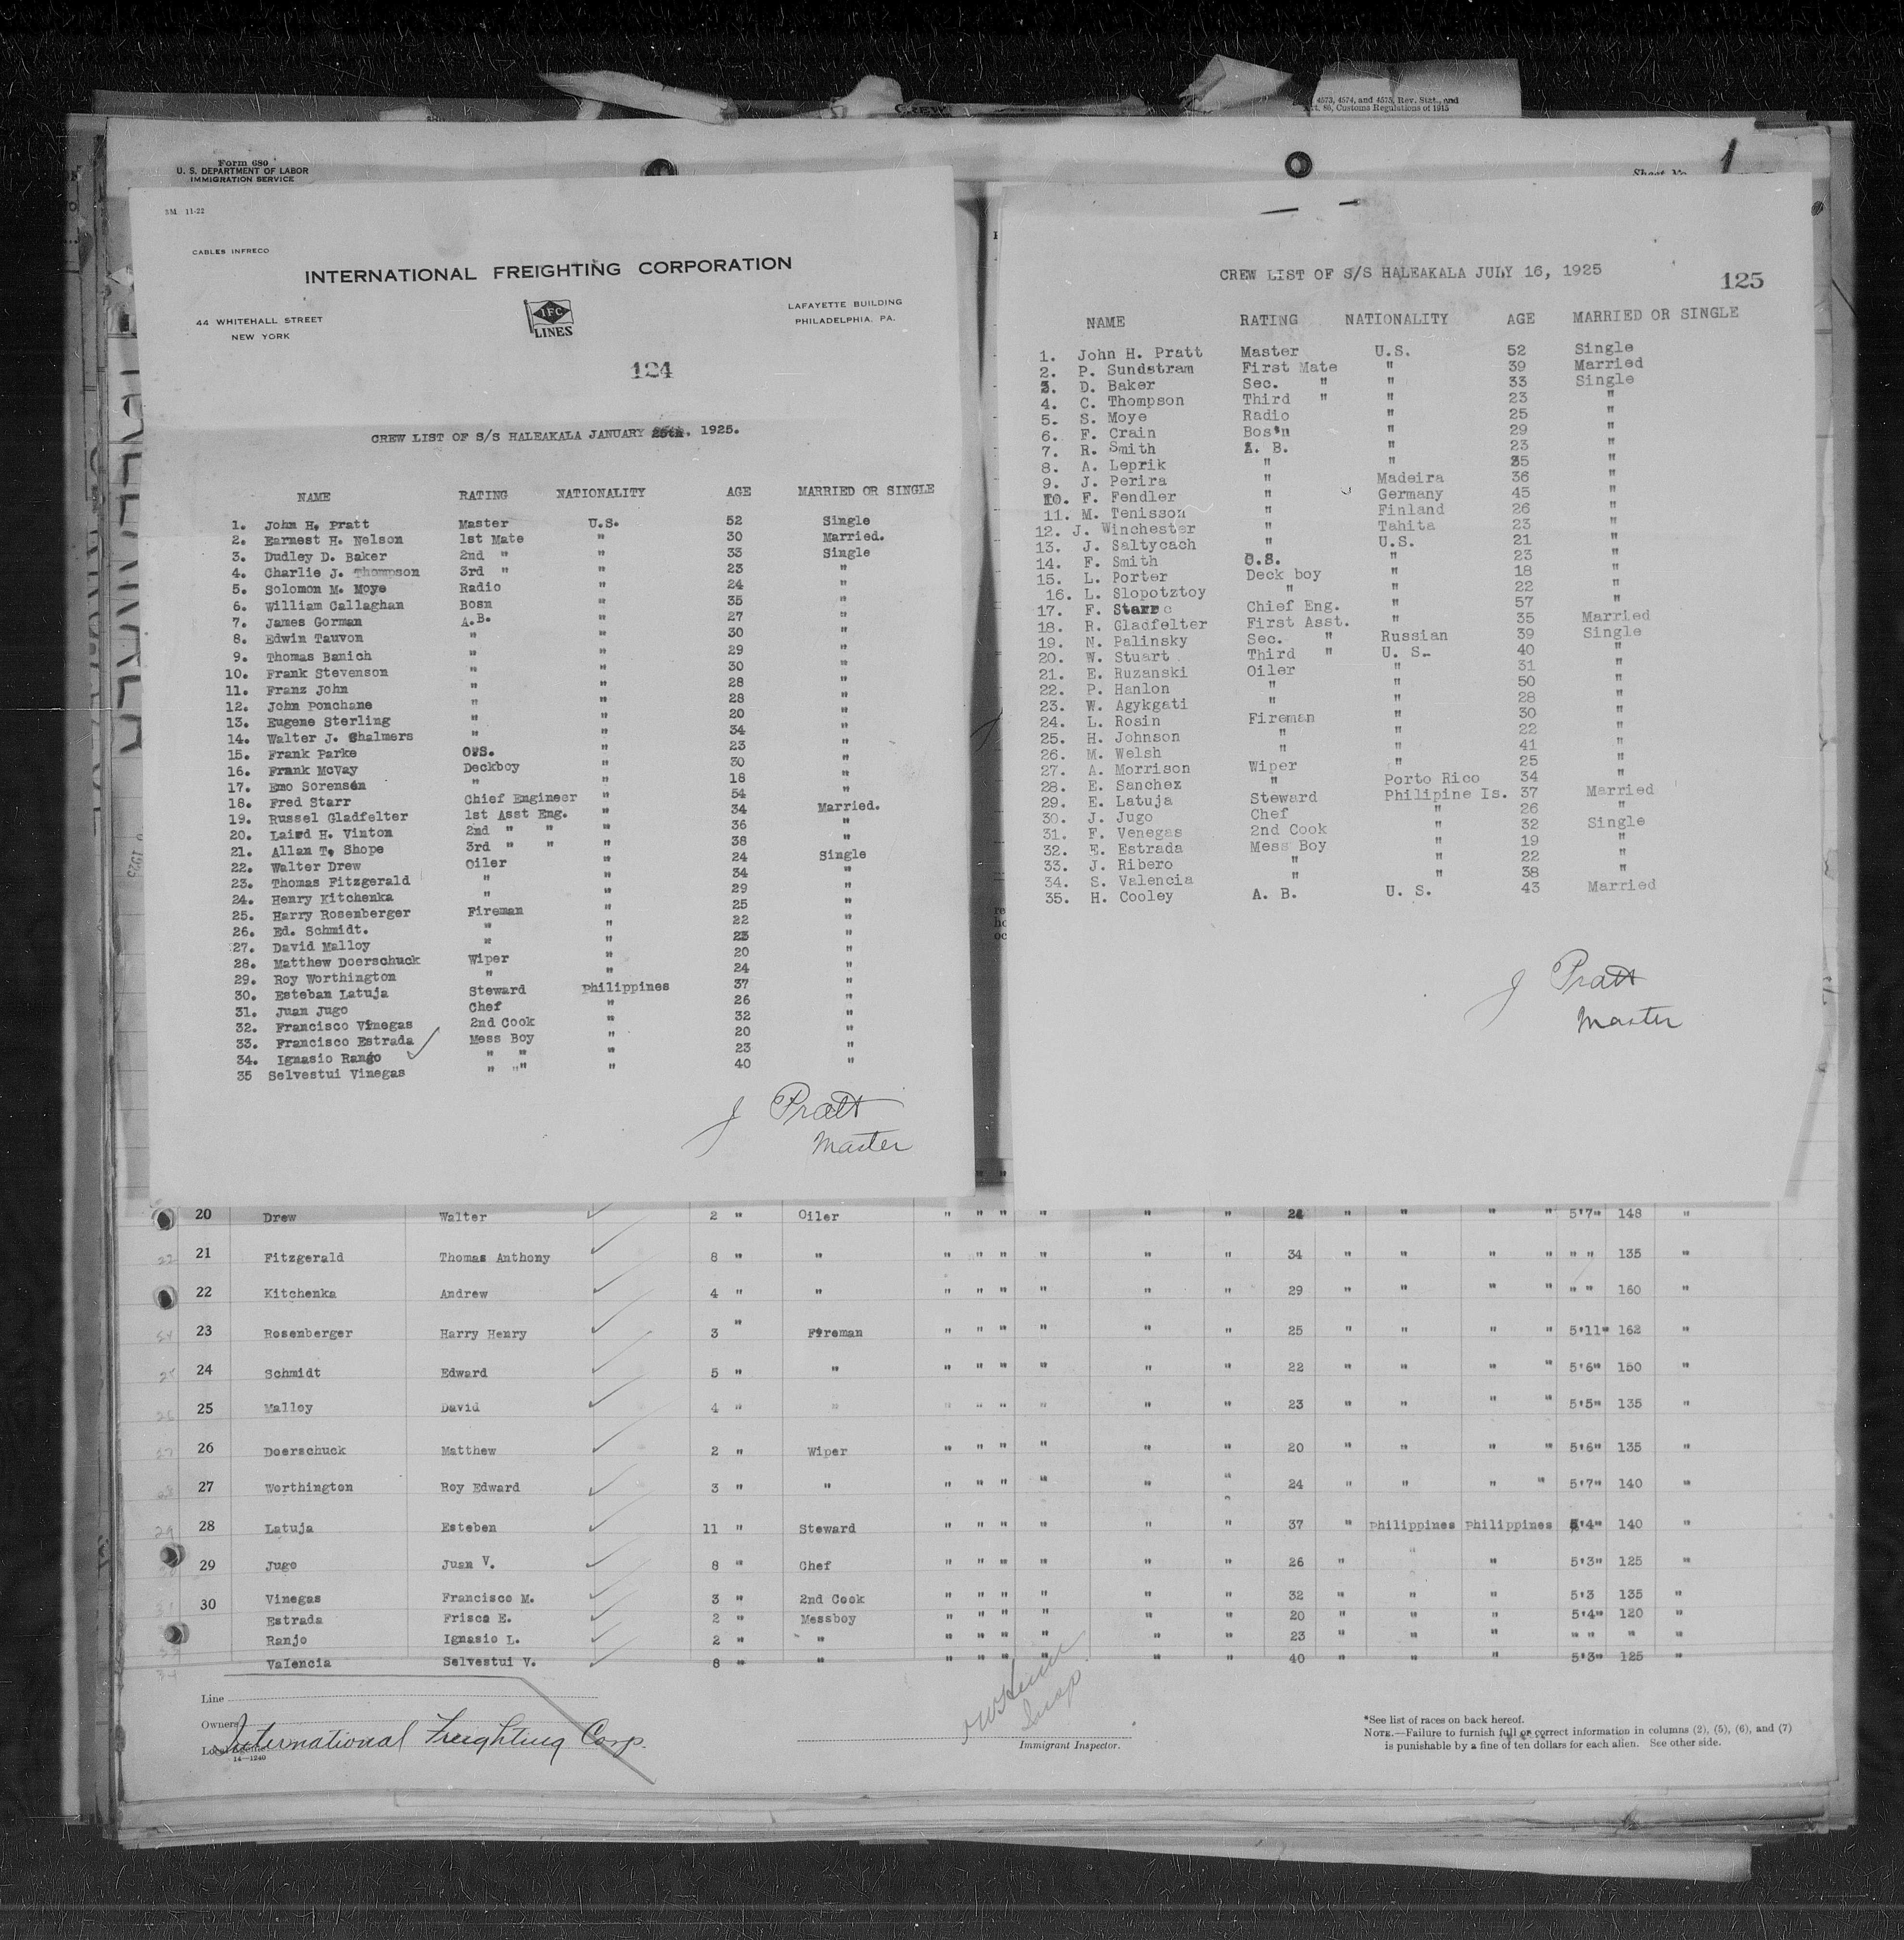 4573, 4574, and 4575, Rev. Stat., and
Customs Regulations of 1915
CREW
Form 680
U. S. DEPARTMENT OF LABOR
IMMIGRATION SERVICE
Sheet No. 1
3M. 11-22
CABLES INFRECO
INTERNATIONAL FREIGHTING CORPORATION
44 WHITEHALL STREET
NEW YORK
IFC
LINES
LAFAYETTE BUILDING
PHILADELPHIA, PA.
124
CREW LIST OF S/S HALEAKALA JANUARY 25th. 1925.
NAME RATING NATIONALITY AGE MARRIED OR SINGLE
1. John H. Pratt Master U.S. 52 Single
2. Earnest H. Nelson 1st Mate " 30 Married.
3. Dudley D. Baker 2nd " " 33 Single
4. Charlie J. Thompson 3rd " " 23 "
5. Solomon M. Moye Radio " 24 "
6. William Callaghan Bosn " 35 "
7. James Gorman A.B. " 27 "
8. Edwin Tauvon " " 30 "
9. Thomas Banich " " 29 "
10. Frank Stevenson " " 30 "
11. Franz John " " 28 "
12. John Ponchane " " 28 "
13. Eugene Sterling " " 20 "
14. Walter J. Chalmers " " 34 "
15. Frank Parke O.S. " 23 "
16. Frank McVay Deckboy " 30 "
17. Emo Sorensen " " 18 "
18. Fred Starr Chief Engineer " 54 "
19. Russel Gladfelter 1st Asst Eng. " 34 Married.
20. Laird H. Vinton 2nd " " " 36 "
21. Allan T. Shope 3rd " " " 38 "
22. Walter Drew Oiler " 24 Single
23. Thomas Fitzgerald " " 34 "
24. Henry Kitchenka " " 29 "
25. Harry Rosenberger Fireman " 25 "
26. Ed. Schmidt. " " 22 "
27. David Malloy " " 23 "
28. Matthew Doerschuck Wiper " 20 "
29. Roy Worthington " " 24 "
30. Esteban Latuja Steward Philippines 37 "
31. Juan Jugo Chef " 26 "
32. Francisco Vinegas 2nd Cook " 32 "
33. Francisco Estrada Mess Boy " 20 "
34. Ignasio Rango " " " 23 "
35 Selvestui Vinegas " " " 40 "
J Pratt
Master
CREW LIST OF S/S HALEAKALA JULY 16, 1925
125
NAME RATING NATIONALITY AGE MARRIED OR SINGLE
1. John H. Pratt Master U.S. 52 Single
2. P. Sundstram First Mate " 39 Married
3. D. Baker Sec. " " 33 Single
4. C. Thompson Third " " 23 "
5. S. Moye Radio " 25 "
6. F. Crain Bos'n " 29 "
7. R. Smith A. B. " 23 "
8. A. Leprik " " 35 "
9. J. Perira " Madeira 36 "
10. F. Fendler " Germany 45 "
11. M. Tenisson " Finland 26 "
12. J. Winchester " Tahita 23 "
13. J. Saltycach " U.S. 21 "
14. F. Smith O.S. " 23 "
15. L. Porter Deck boy " 18 "
16. L. Slopotztoy " " 22 "
17. F. Starr Chief Eng. " 57 "
18. R. Gladfelter First Asst. " 35 Married
19. N. Palinsky Sec. " Russian 39 Single
20. W. Stuart Third " U. S. 40 "
21. E. Ruzanski Oiler " 31 "
22. P. Hanlon " " 50 "
23. W. Agykgati " " 28 "
24. L. Rosin Fireman " 30 "
25. H. Johnson " " 22 "
26. M. Welsh " " 41 "
27. A. Morrison Wiper " 25 "
28. E. Sanchez " Porto Rico 34 "
29. E. Latuja Steward Philipine Is. 37 Married
30. J. Jugo Chef " 26 "
31. F. Venegas 2nd Cook " 32 Single
32. E. Estrada Mess Boy " 19 "
33. J. Ribero " " 22 "
34. S. Valencia " " 38 "
35. H. Cooley A. B. U. S. 43 Married
J Pratt
Master
20 Drew Walter 2 " Oiler " " " " " " 24 " " " " 5'7" 148 "
21 Fitzgerald Thomas Anthony 8 " " " " " " " " 34 " " " " " " 135 "
22 Kitchenka Andrew 4 " " " " " " " " 29 " " " " " " 160 "
23 Rosenberger Harry Henry 3 " Fireman " " " " " " 25 " " " " 5'11" 162 "
24 Schmidt Edward 5 " " " " " " " " 22 " " " " 5'6" 150 "
25 Malloy David 4 " " " " " " " " 23 " " " " 5'5" 135 "
26 Doerschuck Matthew 2 " Wiper " " " " " " 20 " " " " 5'6" 135 "
27 Worthington Roy Edward 3 " " " " " " " " 24 " " " " 5'7" 140 "
28 Latuja Esteben 11 " Steward " " " " " " 37 " Philippines Philippines 5'4" 140 "
29 Jugo Juan V. 8 " Chef " " " " " " 26 " " " 5'3" 125 "
30 Vinegas Francisco M. 3 " 2nd Cook " " " " " " 32 " " " 5'3 135 "
Estrada Frisco E. 2 " Messboy " " " " " " 20 " " " 5'4" 120 "
Ranjo Ignasio L. 2 " " " " " " " " 23 " " " " " " "
Valencia Selvestui V. 8 " " " " " " " " 40 " " " 5'3" 125 "
Line
Owners
International Freighting Corp.
Local Agents
14—1240
Insp
Immigrant Inspector.
*See list of races on back hereof.
NOTE.—Failure to furnish full or correct information in columns (2), (5), (6), and (7)
is punishable by a fine of ten dollars for each alien. See other side.